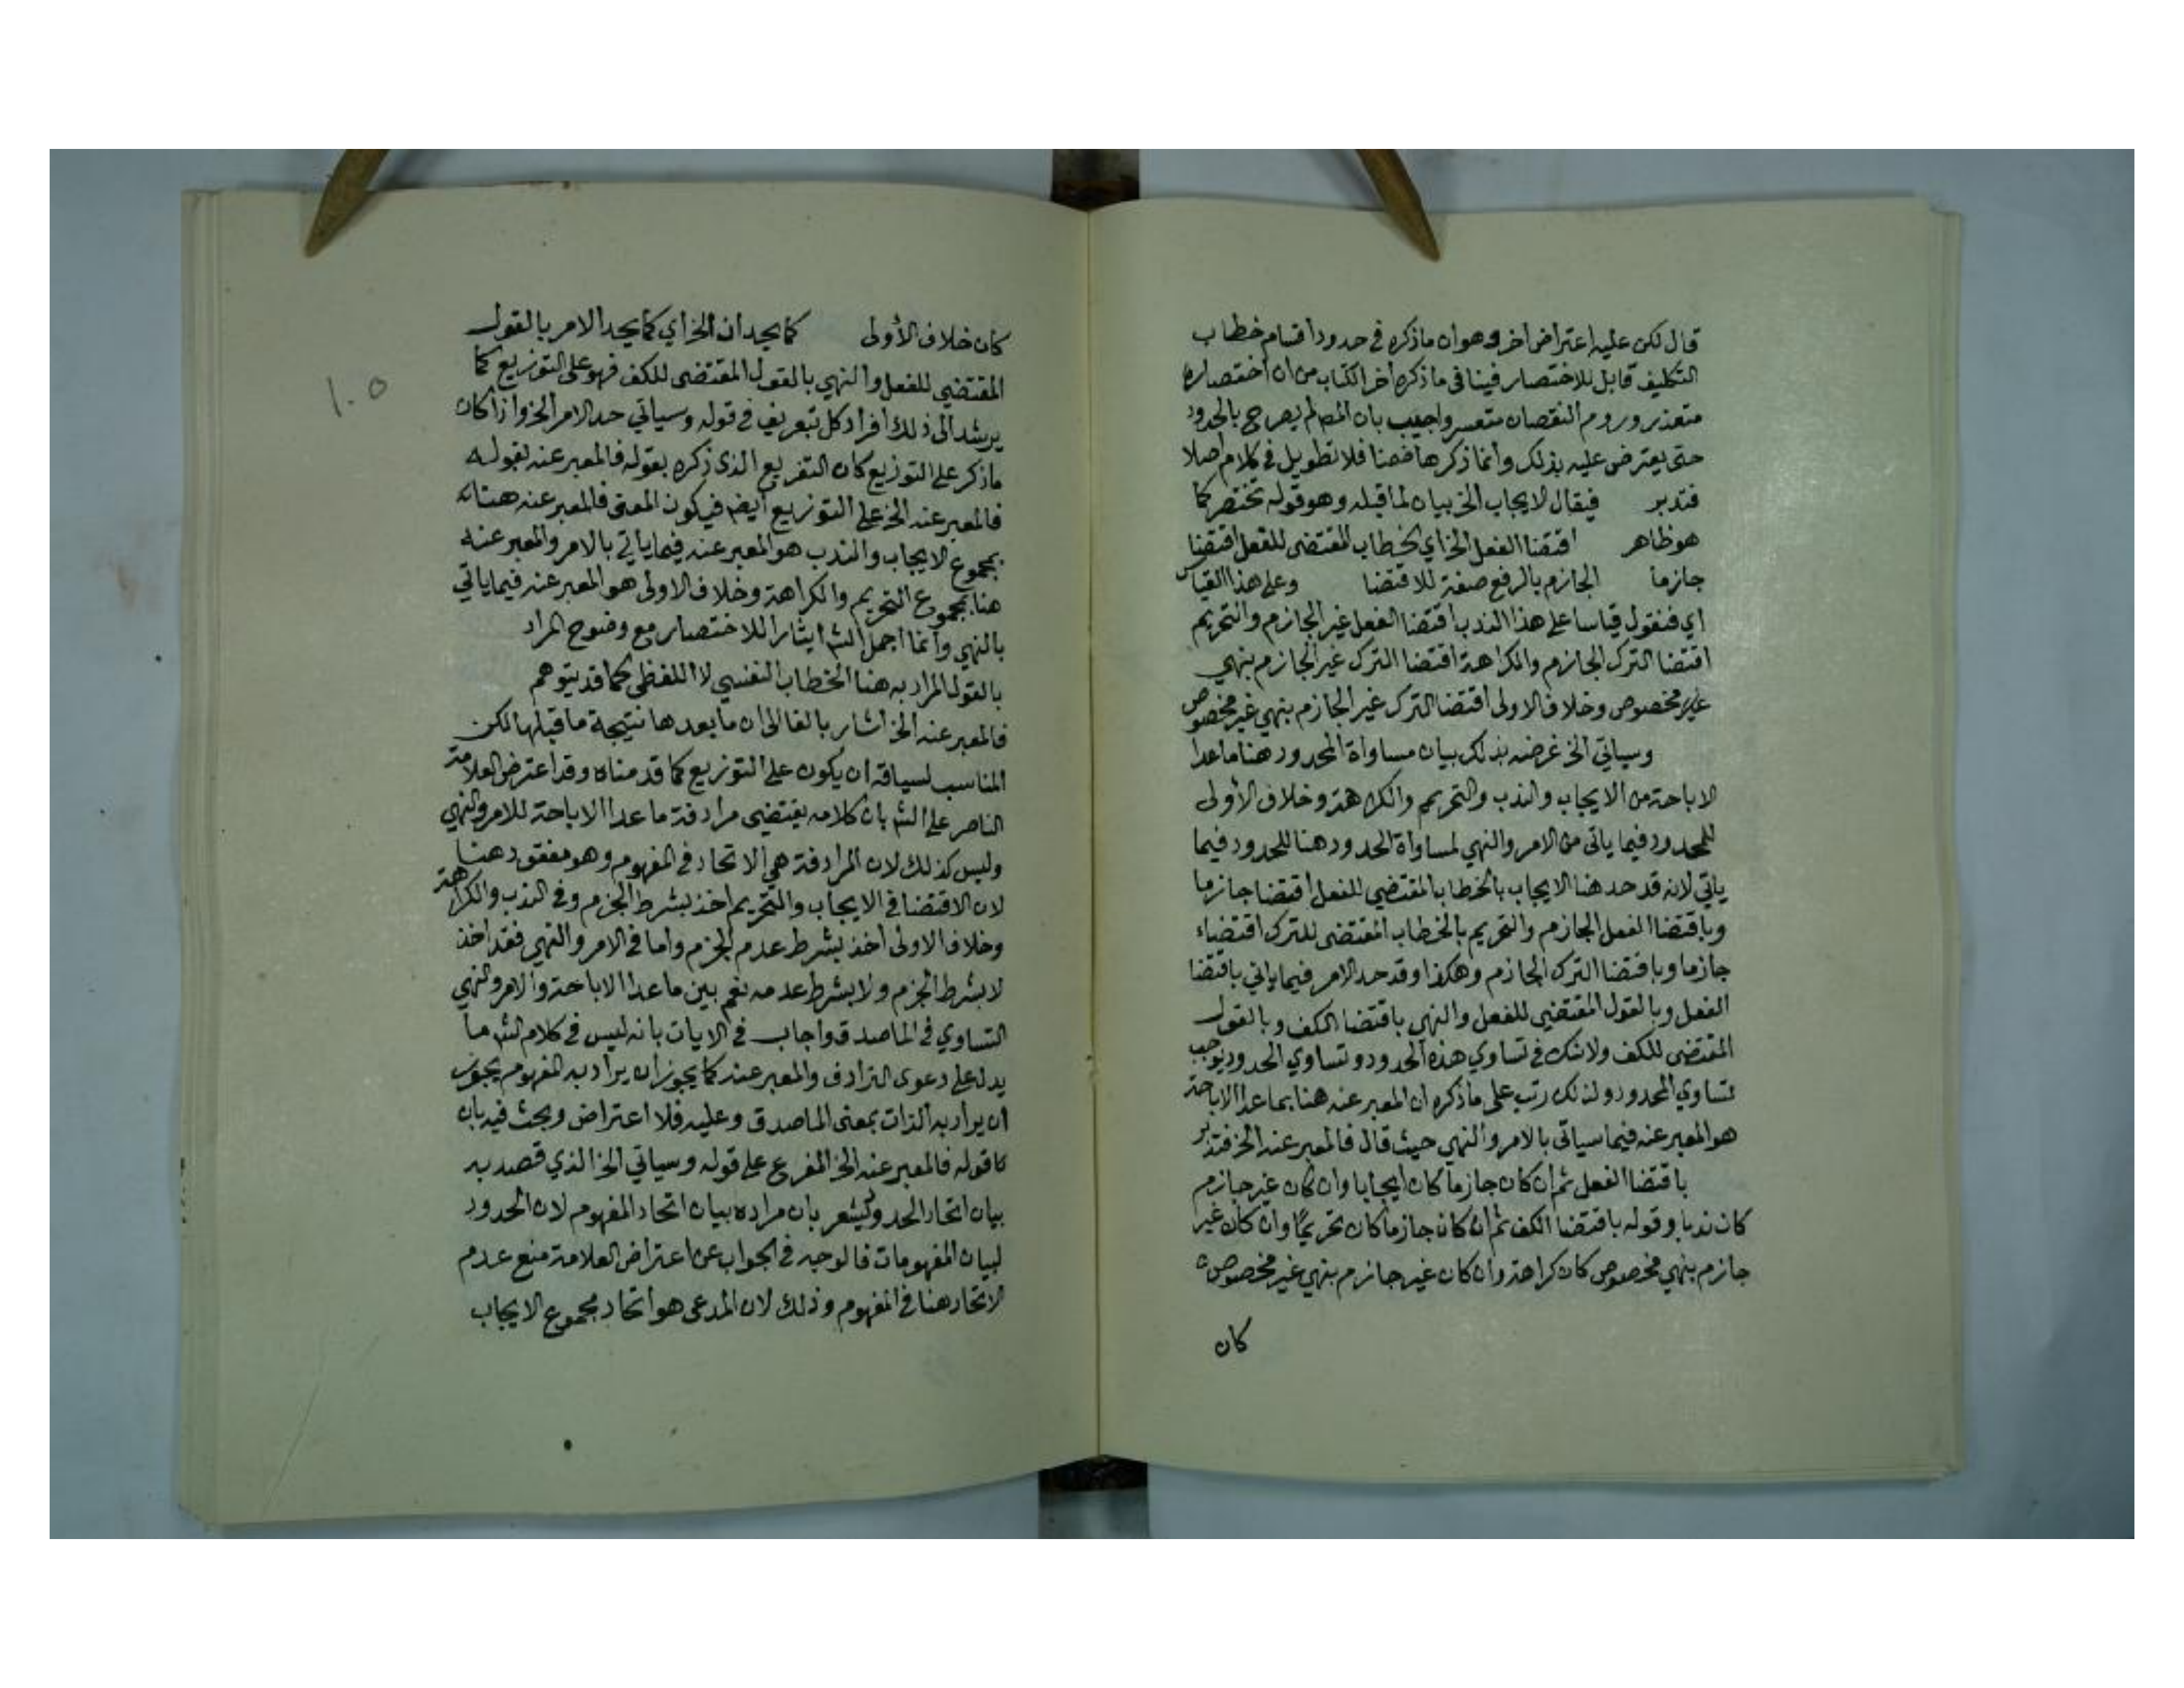 قال لكن عليه اعتراض اخر وهو ان ما ذكره في حدود اقسام خطاب
التكليف قابل للاختصار فينافى ما ذكره اخر الكتاب من ان اختصاره
متعذر وروم النقصان متعسر واجيب بان المص لم يصرح بالحدود
حتى يعترض عليه بذلك وانما ذكرها ضمنا فلا تطويل في كلامه اصلا
فتدبر فيقال لايجاب الخ بيان لما قبله وهو قوله تختصر كما
هو ظاهر اقتضا الفعل الخ اي الخطاب المقتضى للفعل اقتضا
جازما الجازم بالرفع صفة للاقتضا وعلى هذا القياس
اي فنقول قياسا على هذا الندب اقتضا الفعل غير الجازم والتحريم
اقتضا الترك الجازم والكراهة اقتضا الترك غير الجازم بنهي
غير مخصوص وخلاف الاولى اقتضا الترك غير الجازم بنهي غير مخصوص
وسياتي الخ غرضه بذلك بيان مساواة المحدود هنا ما عدا
الاباحة من الايجاب والندب والتحريم والكراهة وخلاف الأولى
للمحدود فيما ياتى من الامر والنهي لمساواة الحدود هنا للحدود فيما
ياتي لانه قد حد هنا الايجاب بالخطاب المقتضي للفعل اقتضا جازما
وباقتضا الفعل الجازم والتحريم بالخطاب المقتضى للترك اقتضاء
جازما وباقتضا الترك الجازم وهكذا وقد حد الامر فيما ياتي باقتضا
الفعل وبالقول المقتضى للفعل والنهي باقتضا الكف وبالقول
المقتضى للكف ولا شك في تساوي هذه الحدود وتساوي الحدود يوجب
تساوي المحدود ولذلك رتب على ما ذكره ان المعبر عنه هنا بما عدا الاباحة
هو المعبر عنه فيما سياتى بالامر والنهي حيث قال فالمعبر عنه الخ فتدبر
باقتضا الفعل ثم ان كان جازما كان ايجابا وان كان غير جازم
كان ندبا وقوله باقتضا الكف ثم ان كان جازما كان تحريمًا وان كان غير
جازم بنهي مخصوص كان كراهة وان كان غير جازم بنهي غير مخصوص
كان
كان خلاف الأولى كما يحد ان الخ اي كما يحد الامر بالقول
المقتضي للفعل والنهي بالقول المقتضى للكف فهو على التوزيع كما
يرشد الى ذلك افراد كل بتعريف في قوله وسياتي حد الامر الخ واذا كان
ما ذكر على التوزيع كان التفريع الذي ذكره بقوله فالمعبر عنه لقوله
فالمعبر عنه الخ على التوزيع ايضا فيكون المعنى فالمعبر عنه هنا
بمجموع الايجاب والندب هو المعبر عنه فيما ياتي بالامر والمعبر عنه
هنا بمجموع التحريم والكراهة وخلاف الاولى هو المعبر عنه فيما ياتي
بالنهي وانما اجمل الش ايثارا للاختصار مع وضوح المراد
بالقول المراد به هنا الخطاب النفسي لا اللفظي كما قد يتوهم
فالمعبر عنه الخ اشار بالفا الى ان ما بعدها نتيجة ما قبلها لكن
المناسب لسياقه ان يكون على التوزيع كما قدمناه وقد اعترض العلامة
الناصر على الش بان كلامه يقتضى مرادفة ما عدا الاباحة للامر والنهي
وليس كذلك لان المرادفة هي الاتحاد في المفهوم وهو مفقود هنا
لان الاقتضا في الايجاب والتحريم اخذ بشرط الجزم وفي الندب والكراهة
وخلاف الاولى اخذ بشرط عدم الجزم واما في الامر والنهي فقد اخذ
لا بشرط الجزم ولا بشرط عدمه نعم بين ما عدا الاباحة والامر والنهي
التساوي في الماصدق واجاب في الايات بانه ليس في كلام الش ما
يدل على دعوى الترادف والمعبر عنه كما يجوز ان يراد به المفهوم يجوز
ان يراد به الذات بمعنى الماصدق وعليه فلا اعتراض وبحث فيه بان
قوله فالمعبر عنه الخ المفرع على قوله وسياتي الخ الذي قصد به
بيان اتحاد الحد وليشعر بان مراده بيان اتحاد المفهوم لان الحدود
لبيان المفهومات فالوجه في الجواب عن اعتراض العلامة منع عدم
الاتحاد هنا في المفهوم وذلك لان المدعى هو اتحاد مجموع الايجاب
١٠٥